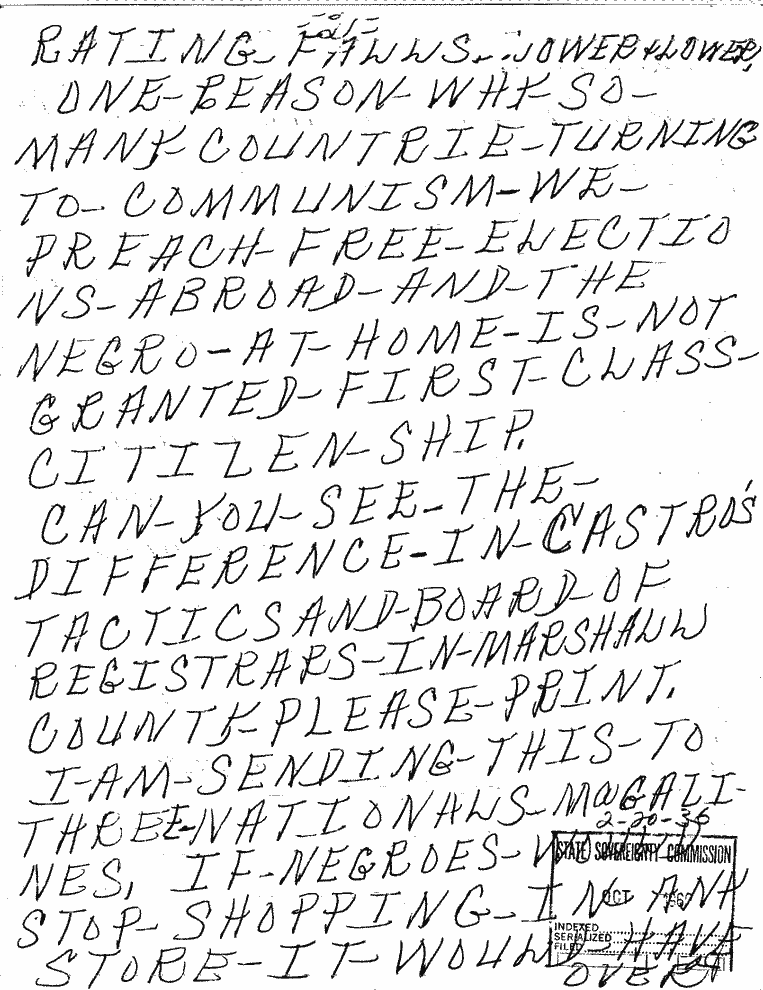 RATING-FALLS-LOWER & LOWER,
ONE-REASON-WHY-SO-
MANY-COUNTRIE-TURNING
TO-COMMUNISM-WE-
PREACH-FREE-ELECTIO
NS-ABROAD-AND-THE
NEGRO-AT-HOME-IS-NOT
GRANTED-FIRST-CLASS-
CITIZEN-SHIP.
CAN-YOU-SEE-THE-
DIFFERENCE-IN-CASTRO'S
TACTICS AND-BOARD-OF
REGISTRARS-IN-MARSHALL
COUNTY-PLEASE-PRINT.
I-AM-SENDING-THIS-TO
THREE-NATIONALS-MAGAZI-
2-20-36
NES, IF-NEGROES-
STATE SOVEREIGNTY COMMISSION
STOP-SHOPPING-IN ANY
OCT
INDEXED
SERIALIZED
FILED
STORE-IT-WOULD-HAVE
OVER